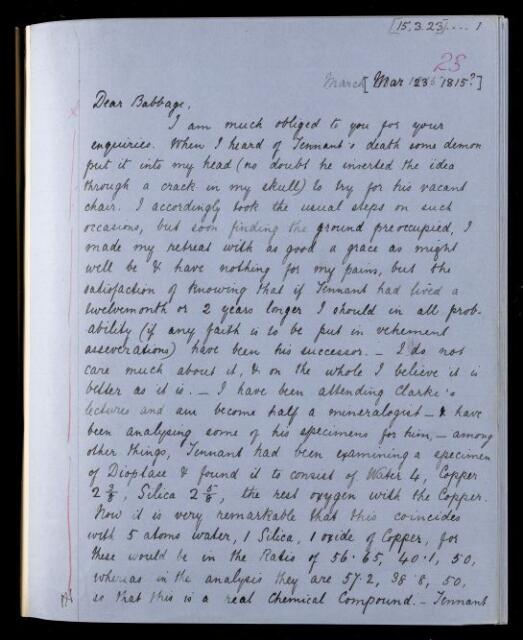 [15.3.23].... 1
28
March [Mar 23 1815?]
Dear Babbage,
I am much obliged to you for your
enquiries. When I heard of Tennant's death some demon
put it into my head (no doubt he inserted the idea
through a crack in my skull) to try for his vacant
chair. I accordingly took the usual steps on such
occasions, but soon finding the ground preoccupied, I
made my retreat with as good a grace as might
well be & have nothing for my pains, but the
satisfaction of knowing that if Tennant had lived a
twelvemonth or 2 years longer I should in all prob-
ability (if any faith is to be put in vehement
asseverations) have been his successor. — I do not
care much about it, & on the whole I believe it is
better as it is. — I have been attending Clarke's
lectures and am become half a mineralogist — & have
been analysing some of his specimens for him, — among
other things, Tennant had been examining a specimen
of Dioptase & found it to consist of Water 4, Copper
2 , Silica 2 , the rest oxygen with the Copper.
Now it is very remarkable that this coincides
with 5 atoms water, 1 Silica, 1 oxide of Copper, for
these would be in the Ratio of 56.65, 40.1, 50,
whereas in the analysis they are 57.2, 38.8, 50,
so that this is a real Chemical Compound. — Tennant